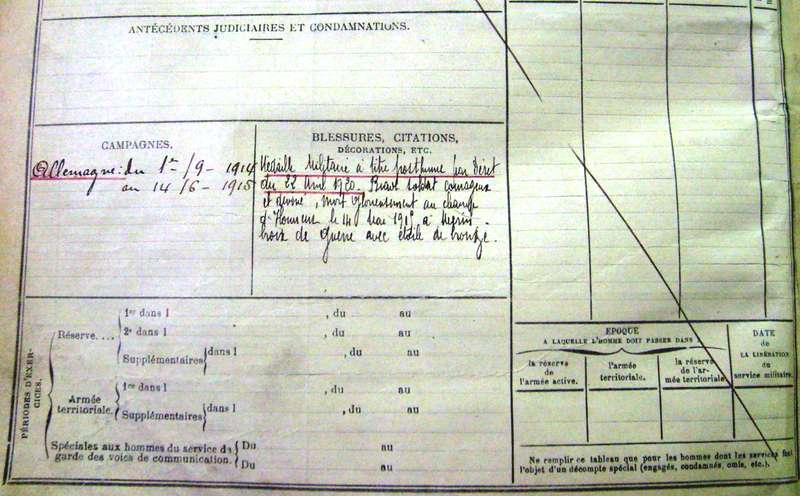 ANTÉCÉDENTS JUDICIAIRES ET CONDAMNATIONS.
CAMPAGNES.
Allemagne: du 1er /9 - 1914
au 14/6 - 1915
BLESSURES, CITATIONS,
DÉCORATIONS, ETC.
Médaille Militaire à titre posthume
du 22 Avril 1920. Brave soldat courageux
et dévoué, mort glorieusement au champ
d'Honneur le 14
Croix de Guerre avec étoile de bronze.
PÉRIODES D'EXERCICES.
Réserve....
1re dans l , du au
2e dans l , du au
Supplémentaires dans l , du au
Armée territoriale.
1re dans l , du au
Supplémentaires dans l , du au
Spéciales aux hommes du service de
garde des voies de communication.
Du au
Du au
EPOQUE
A LAQUELLE L'HOMME DOIT PASSER DANS
la réserve
de
l'armée active.
l'armée
territoriale.
la réserve
de l'ar-
mée territoriale.
DATE
de
LA LIBÉRATION
du
service militaire.
Ne remplir ce tableau que pour les hommes dont les services font
l'objet d'un décompte spécial (engagés, condamnés, omis, etc.).